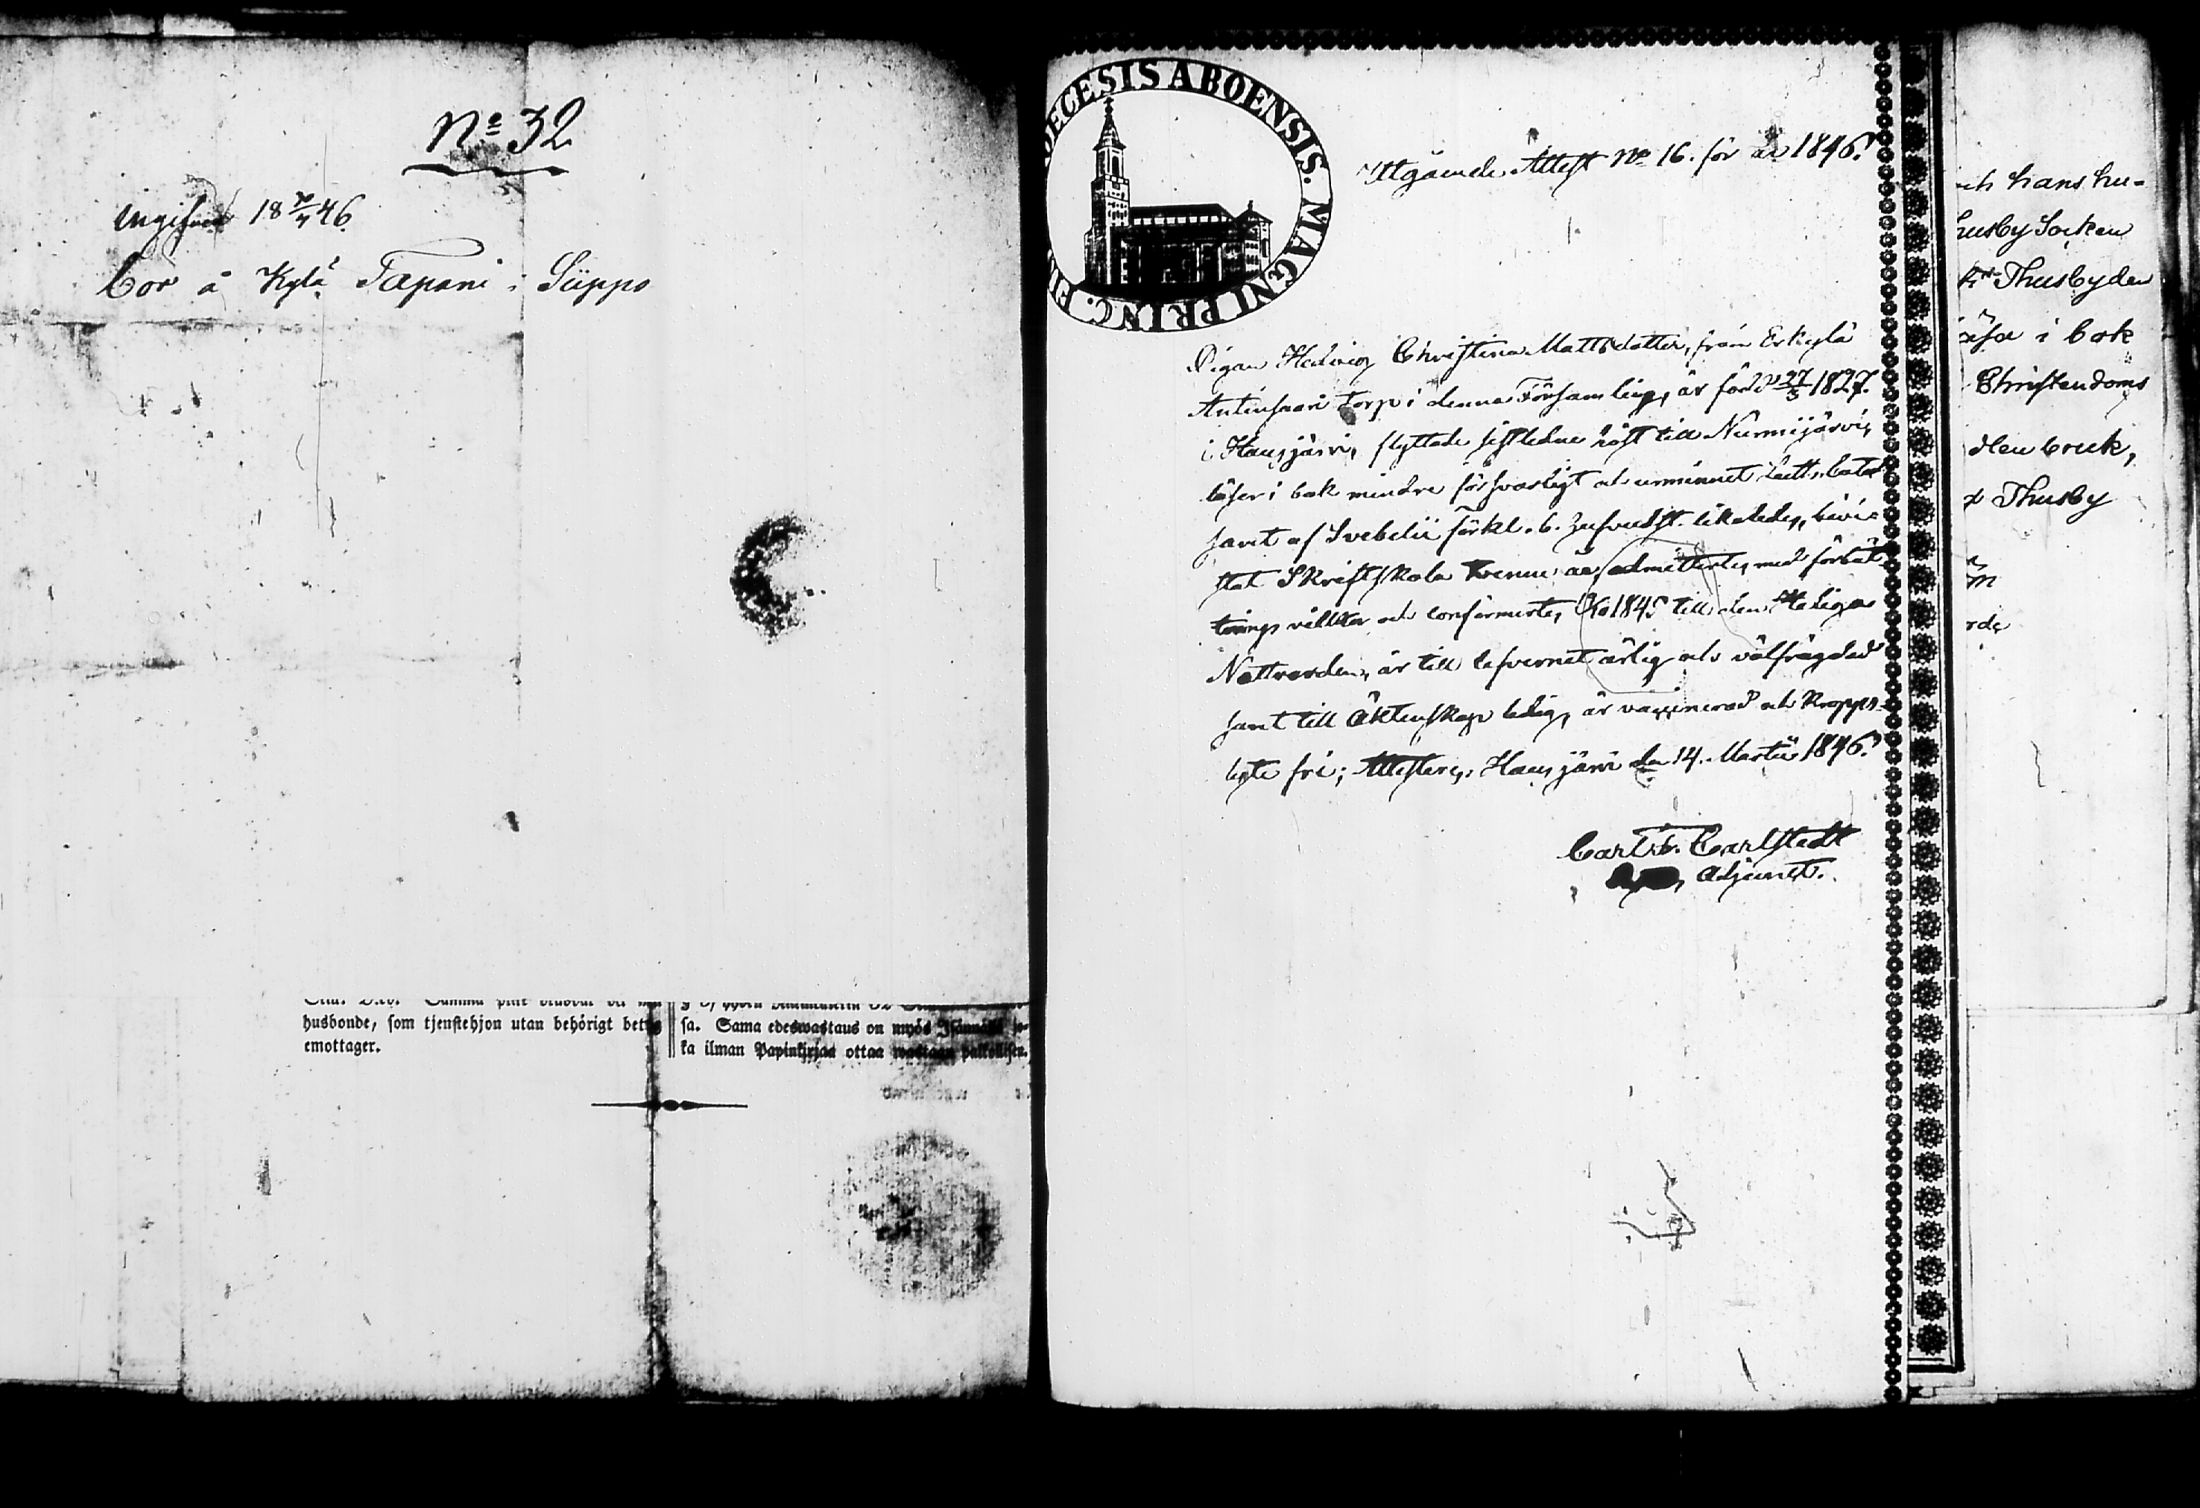 No 32
Ingifvit 18 7/4 46.
bor å Kylä Tapani i Siippo
husbonde, som tjenstehjon utan behörigt
emottager.
sa. Sama edeswastaus on myös Isännällä jo-
ka ilman Papinkirjaa ottaa wastaan palkollisen.
DIOECESIS ABOENSIS. MAGNI PRINC.
Utgående Attest No 16. för år 1846.
Pigan Hedvig Christina Mattsdotter, från Erkylä
Antinsaari torp i denna Församling, är född 27/3 1827.
i Hausjärvi, flyttade sistledne höst till Nurmijärvi,
läser i bok mindre försvarligt och urminnet Luth. Cat.
samt af Svebelii förkl. b. likaledes, bevi-
stat Skriftskola tvenne admitterts med förbät-
trings villkor och confirmerts 1845 till den Heliga
Nattvarden, är till lefvernet ärlig och välfrägdad
samt till Äktenskap ledig, är vaccinerad och Kropps-
lyte fri; Attesterar, Hausjärvi den 14. Martii 1846.
Carl Carlstedt
Adjunct.
och hans hu-
Thusby Socken
Thusby den
läsa i bok
Christendoms
Thusby